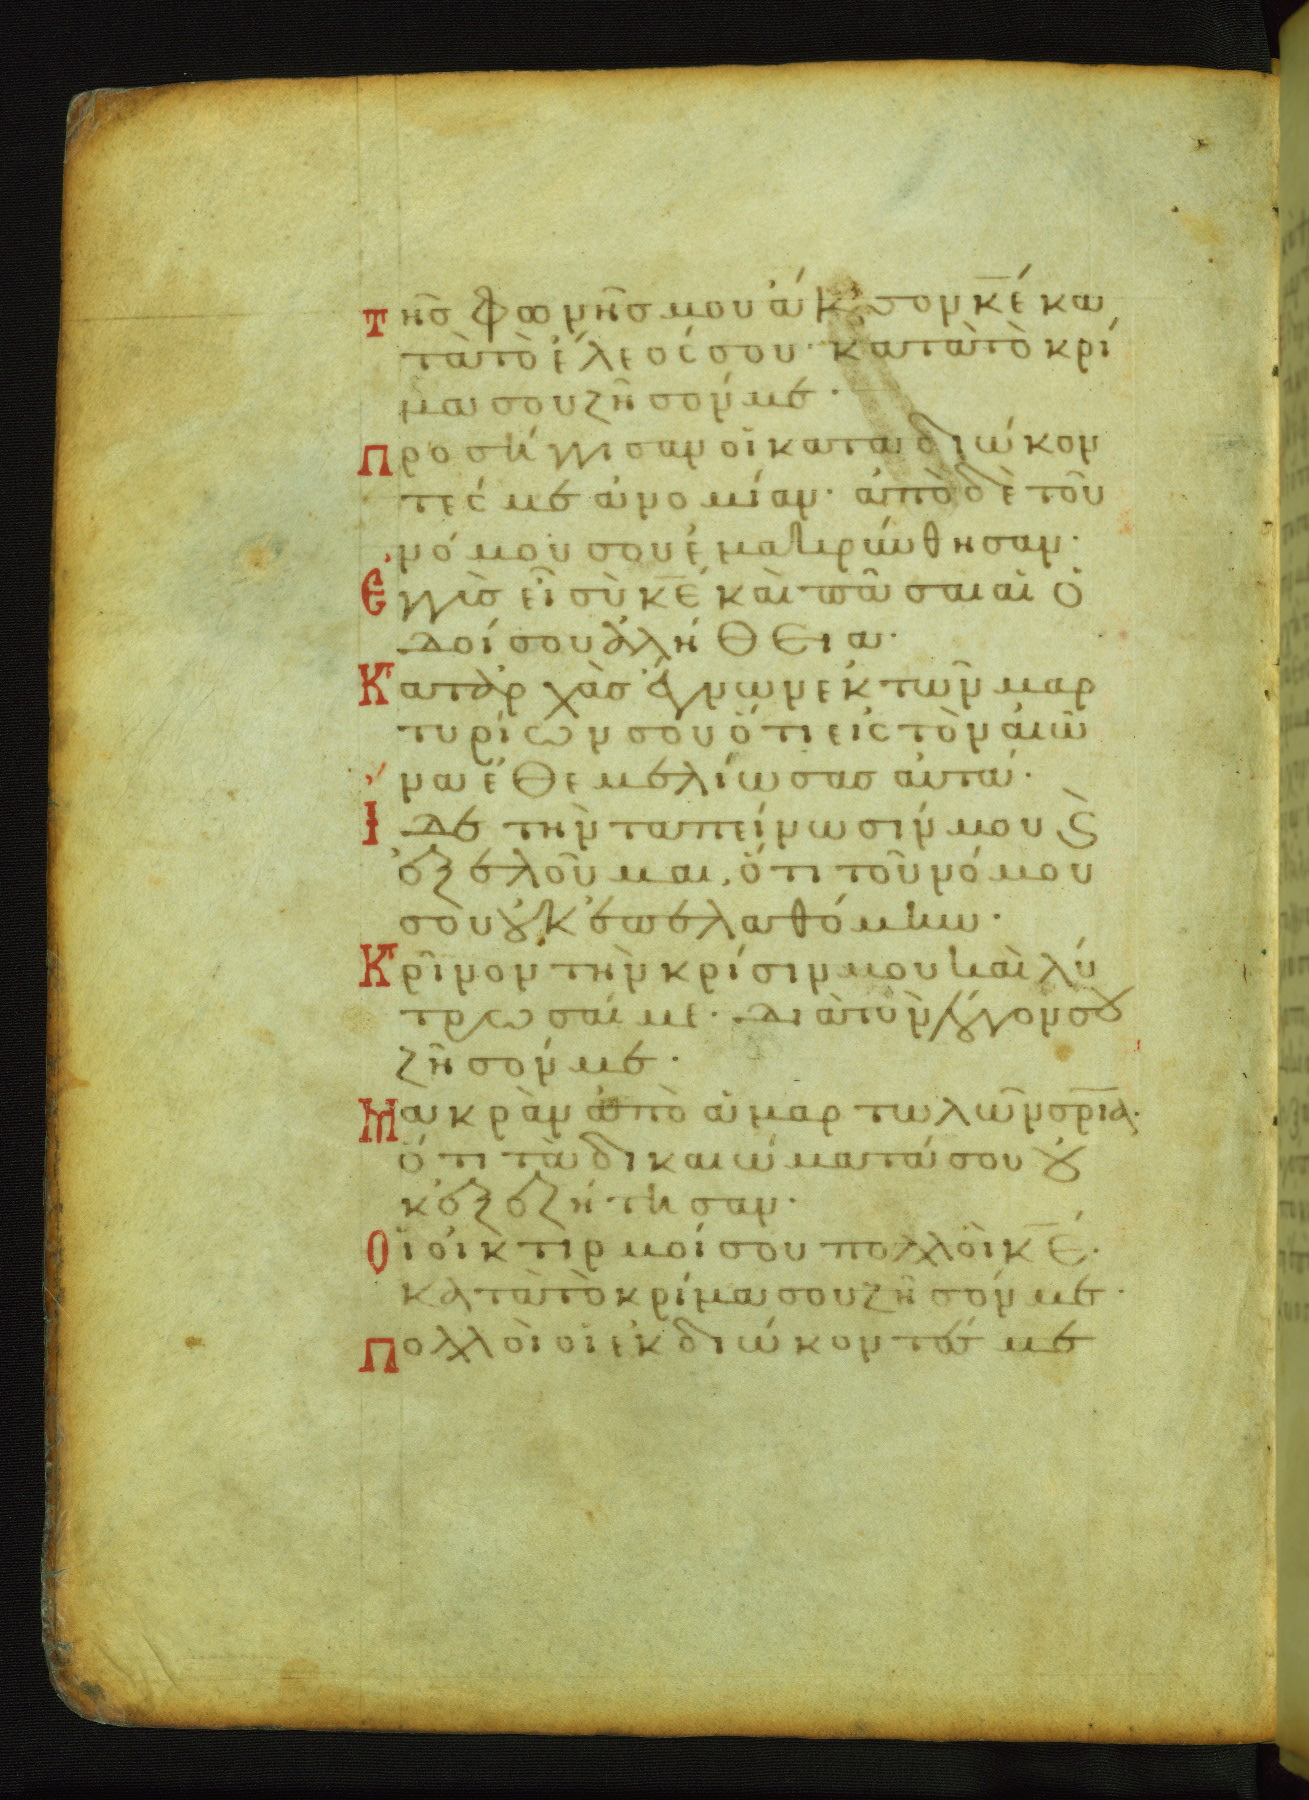 Τῆς φωνῆς μου ἄκουσον κ̅ε̅ κα
τὰ τὸ ἔλεός σου· κατὰ τὸ κρί
μα σου ζῆσόν με·
Προσήγγισαν οἱ καταδιώκον
τές με ἀνομίαν· ἀπὸ δὲ τοῦ
νόμου σου ἐμακρύνθησαν·
Ἐγγὺς εἶ σὺ κ̅ε̅ καὶ πᾶσαι αἱ ὁ
δοί σου ἀλήθεια·
Κατ' ἀρχὰς ἔγνων ἐκ τῶν μαρ
τυρίων σου ὅτι εἰς τὸν αἰῶ
να ἐθεμελίωσας αὐτά·
Ἴδε τὴν ταπείνωσίν μου ϗ
ἐξελοῦ μαι, ὅτι τοῦ νόμου
σου οὐκ ἐπελαθόμην·
Κρῖνον τὴν κρίσιν μου καὶ λύ
τρωσαί με· διὰ τὸν λόγον σου
ζῆσόν με·
Μακρὰν ἀπὸ ἁμαρτωλῶν σ̅ρ̅ι̅α̅·
ὅτι τὰ δικαιώματά σου οὐ
κ ἐξεζήτησαν·
Οἱ οἰκτιρμοί σου πολλοὶ κ̅ε̅·
κατὰ τὸ κρίμα σου ζῆσόν με·
Πολλοὶ οἱ ἐκδιώκοντές με